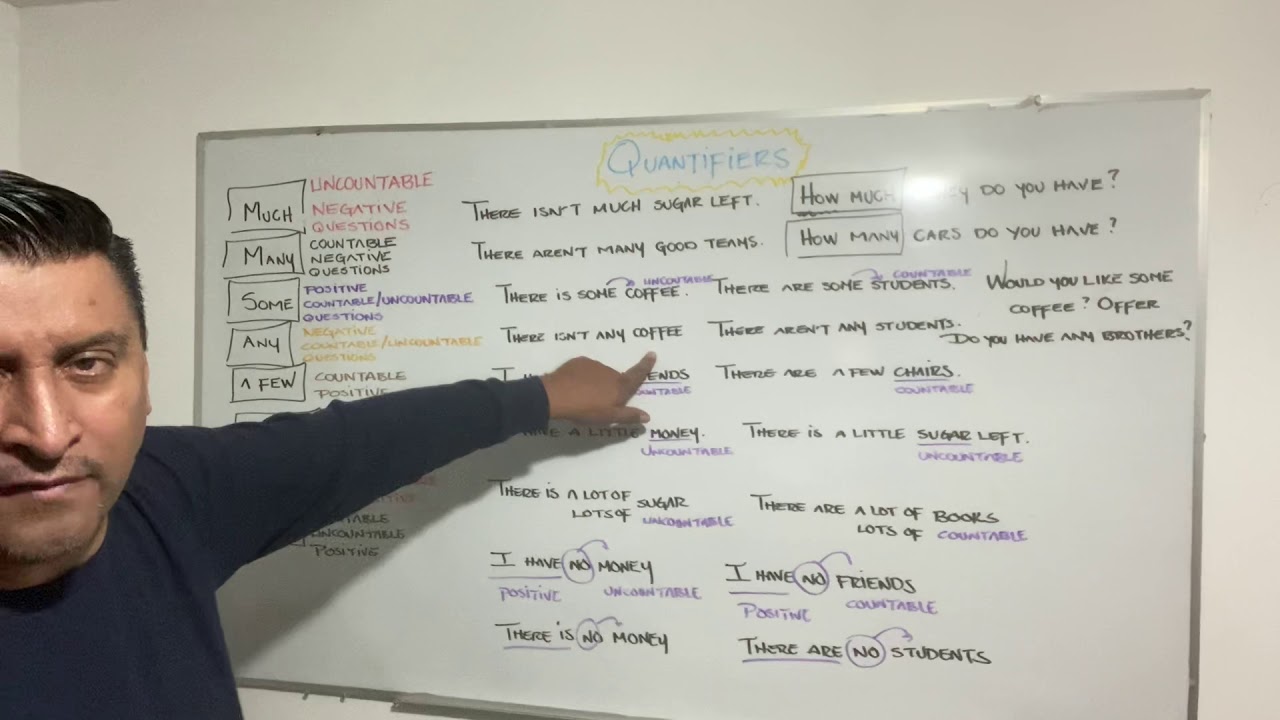 QUANTIFIERS
MUCH
UNCOUNTABLE
NEGATIVE
QUESTIONS
THERE ISN'T MUCH SUGAR LEFT.
HOW MUCH DO YOU HAVE?
MANY
COUNTABLE
NEGATIVE
QUESTIONS
THERE AREN'T MANY GOOD TEAMS.
HOW MANY CARS DO YOU HAVE?
SOME
POSITIVE
COUNTABLE/UNCOUNTABLE
QUESTIONS
UNCOUTABLE
THERE IS SOME COFFEE.
COUNTABLE
THERE ARE SOME STUDENTS.
WOULD YOU LIKE SOME
COFFEE? OFFER
ANY
NEGATIVE
COUNTABLE/UNCOUNTABLE
QUESTIONS
THERE ISN'T ANY COFFEE
THERE AREN'T ANY STUDENTS.
DO YOU HAVE ANY BROTHERS?
A FEW
COUNTABLE
POSITIVE
I
THERE ARE A FEW CHAIRS.
COUNTABLE
A LITTLE MONEY.
UNCOUNTABLE
THERE IS A LITTLE SUGAR LEFT.
UNCOUNTABLE
UNCOUNTABLE
POSITIVE
THERE IS A LOT OF SUGAR
LOTS OF UNCOUNTABLE
THERE ARE A LOT OF BOOKS
LOTS OF COUNTABLE
I HAVE NO MONEY
POSITIVE UNCOUNTABLE
I HAVE NO FRIENDS
POSITIVE COUNTABLE
THERE IS NO MONEY
THERE ARE NO STUDENTS